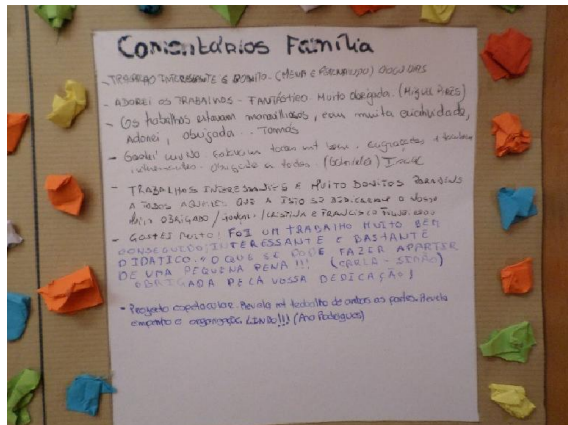 Comentários Família
- TRABALHO INTERESSANTE E BONITO. (MENA E FERNANDO)
- ADOREI OS TRABALHOS - FANTÁSTICO Muito obrigada. (Miguel Pires)
- Os trabalhos estavam maravilhosos, com muita criatividade,
Adorei, obrigada. Tomás
- Gostei muito. Estavam todos mt bem
Obrigado a todos.
- TRABALHOS INTERESSANTES E MUITO BONITOS PARABÉNS
A TODOS AQUELES QUE A ISTO SE DEDICARAM O NOSSO
OBRIGADO / CRISTINA E FRANCISCO
- GOSTEI MUITO! FOI UM TRABALHO MUITO BEM
CONSEGUIDO, INTERESSANTE E BASTANTE
DIDATICO. O QUE SE PODE FAZER APARTIR
DE UMA PEQUENA PENA!!! (CARLA - SIMÃO)
OBRIGADA PELA VOSSA DEDICAÇÃO!
- Projecto espetacular. Revela mt trabalho de ambas as partes. Revela
empenho e organização LINDO!!! (Ana Rodrigues)